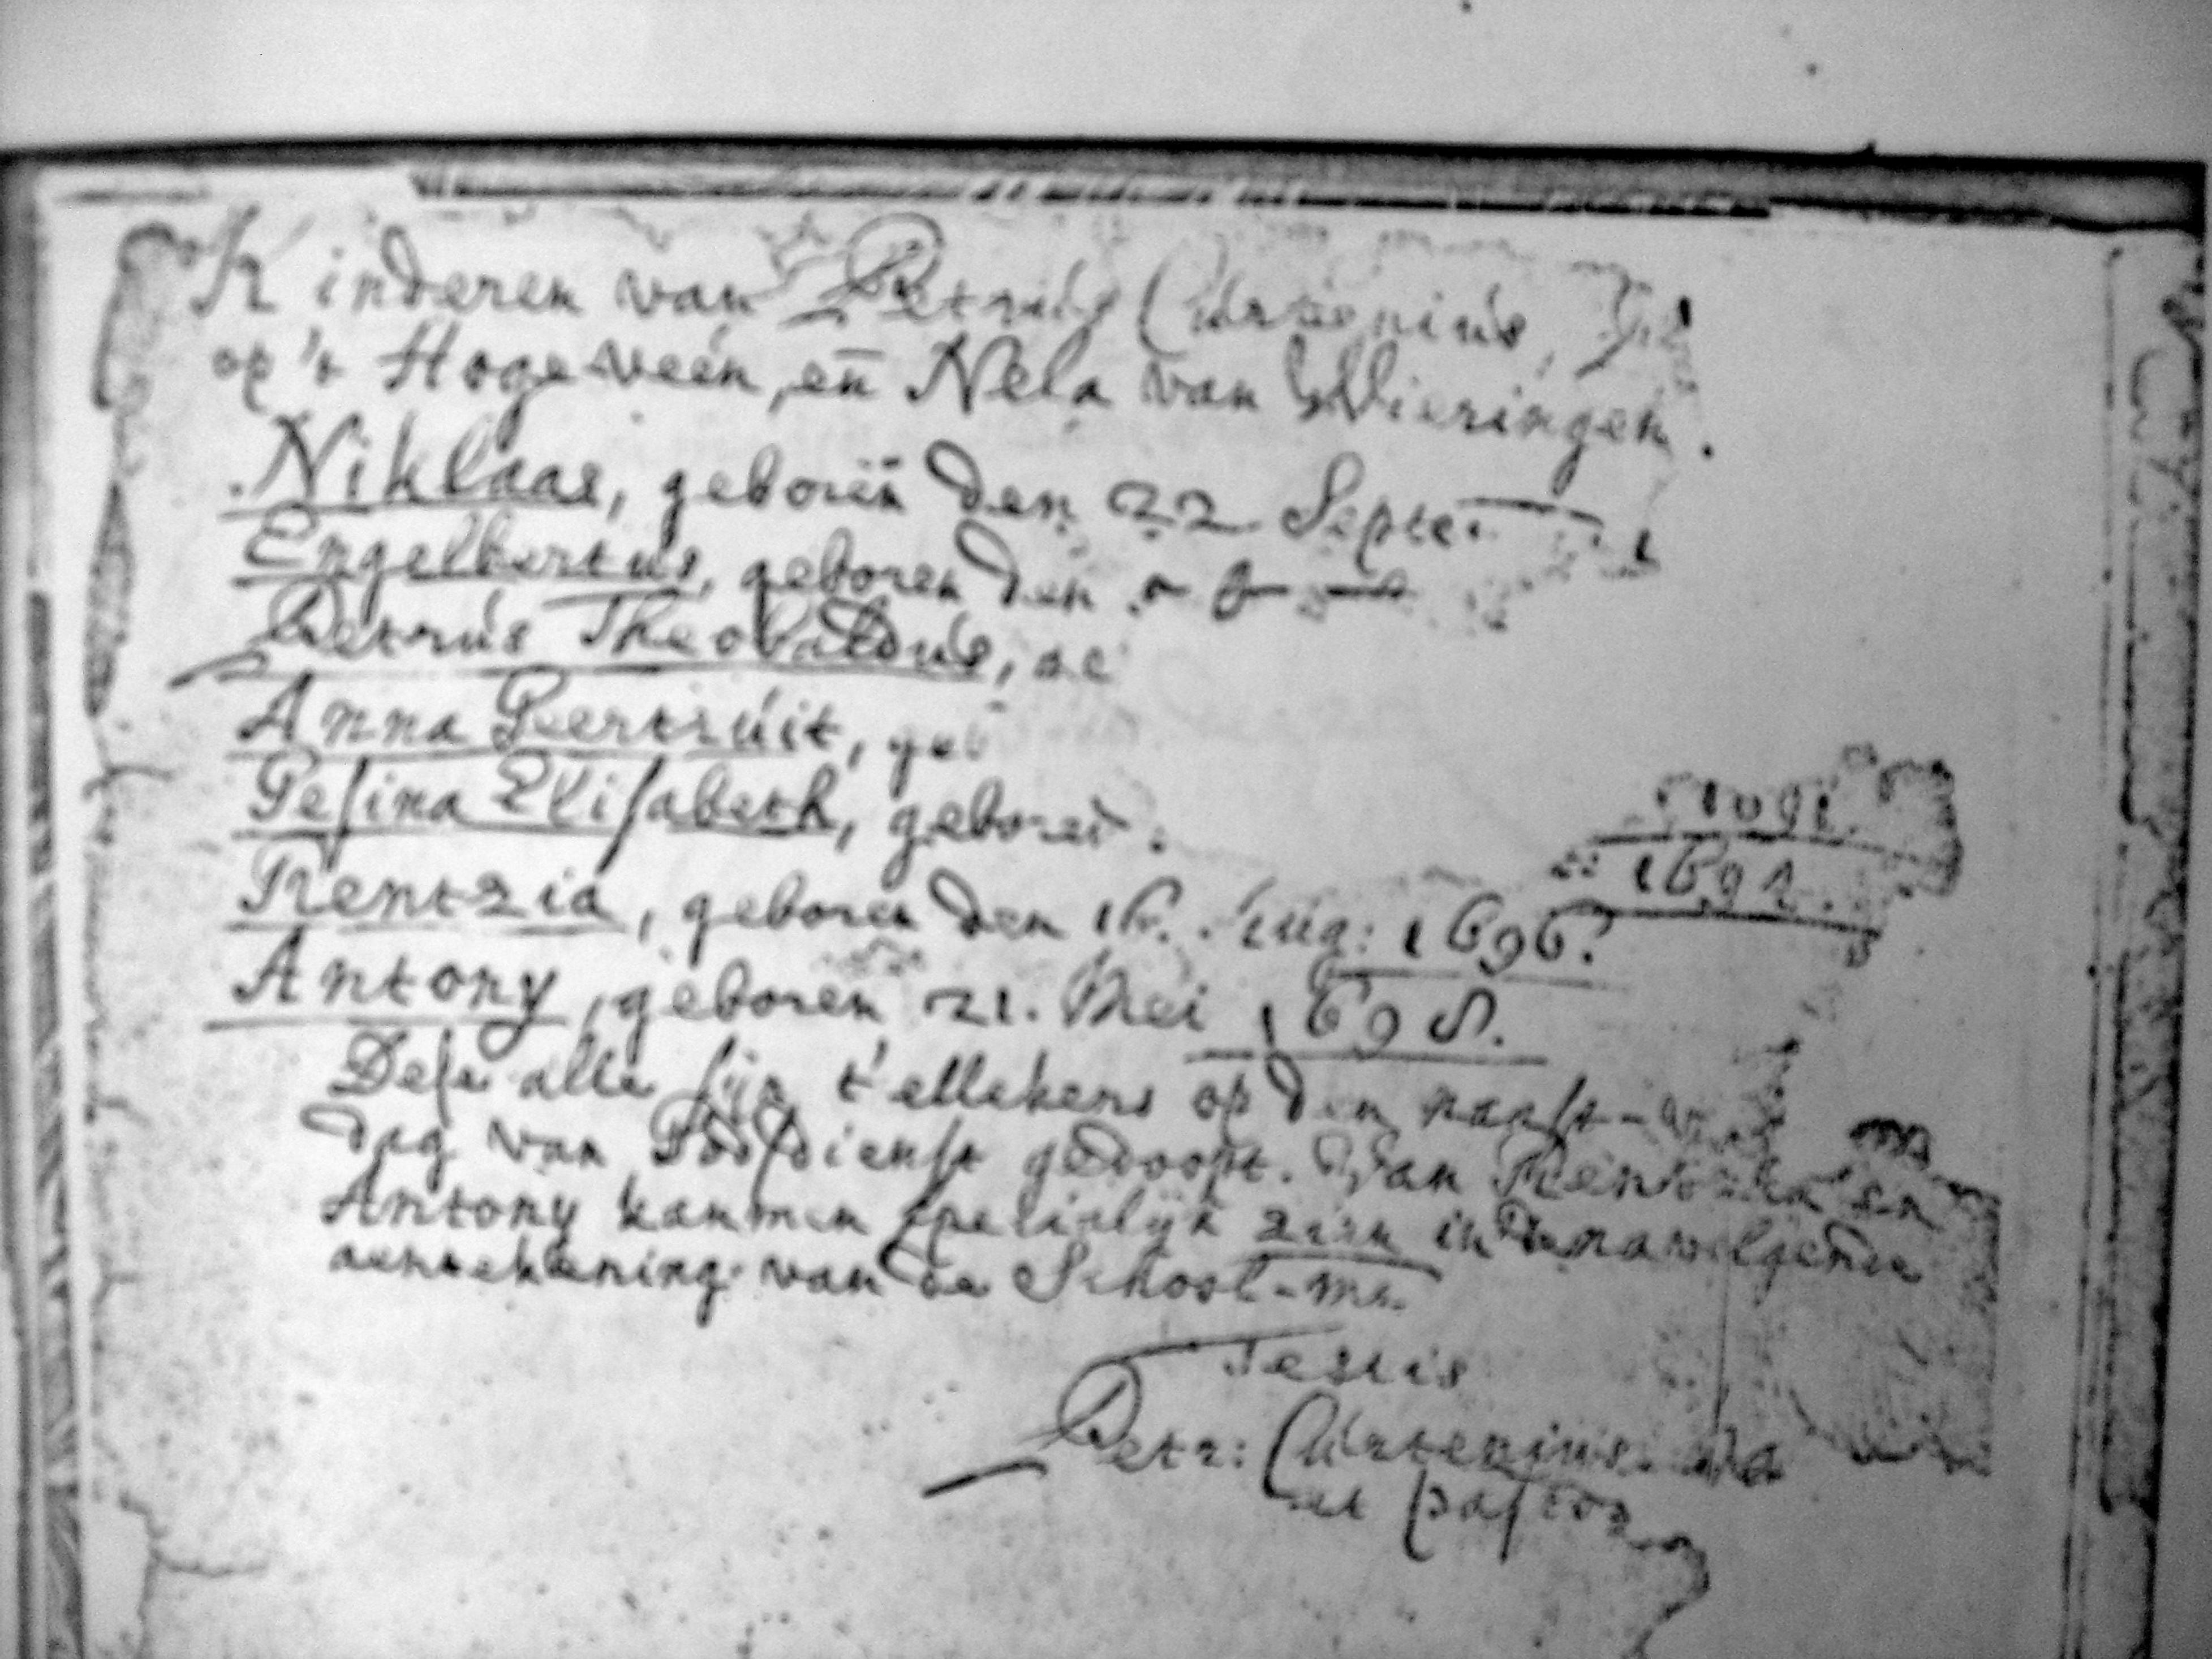 Kinderen van Petrus Curtenius,
op 't Hoge-veen, en Nela van Wieringen.
Niklaas, geboren den 22 Septe
Engelbertus, geboren den
Petrus Theobaldus,
Anna Geertruit, geb
Gesina Elisabeth, geboren
1691.
1692.
Rentzia, geboren den 16. Aug: 1696.
Antony, geboren 21. Mei 1698.
Dese alle sijn t'ellekens op den naast-
dag van Godsdienst gedoopt. Van Rentzia en
Antony kan men specialijk zien in de navolgende
aentekening van de School-mr.
Testis
Petr: Curtenius.
et pastor